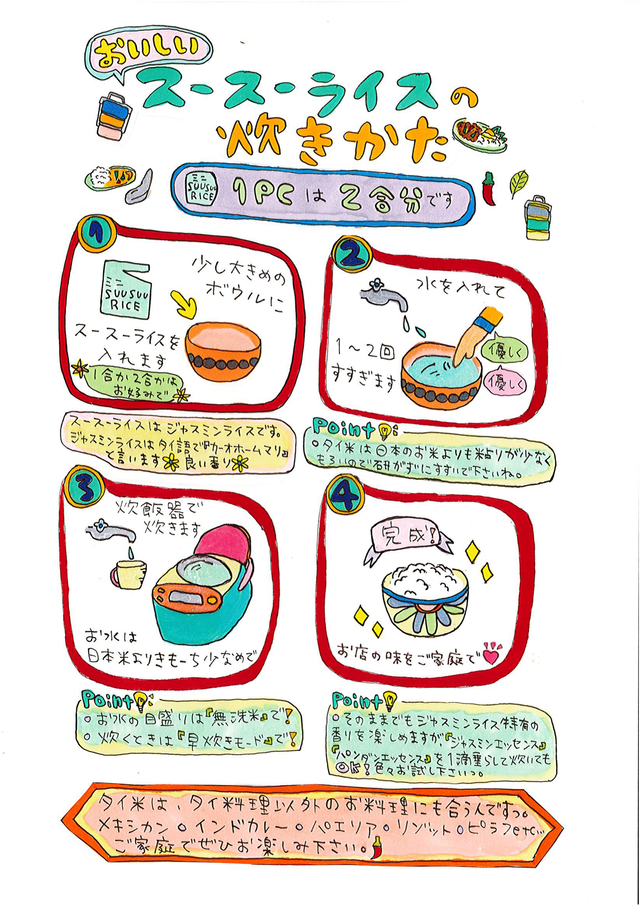 おいしい
スースーライスの
炊きかた
ミニ
SUUSUU
RICE
1PCは2合分です
1
ミニ
SUUSUU
RICE
少し大きめの
ボウルに
スースーライスを
入れます
1合か2合かは
お好みで
スースーライスはジャスミンライスです。
ジャスミンライスはタイ語で『カーオホームマリ』
と言います 良い香り
2
水を入れて
1〜2回
すすぎます
優しく
優しく
Point:
○タイ米は日本のお米よりも粘りが少なく
もろいので研がずにすすいで下さいね。
3
炊飯器で
炊きます
お水は
日本米よりきもーち少なめで
Point:
○お水の目盛りは『無洗米』で!
○炊くときは『早炊きモード』で!
4
完成!
お店の味をご家庭で
Point:
○そのままでもジャスミンライス特有の
香りを楽しめますが、『ジャスミンエッセンス』
『パンダンエッセンス』を1滴垂らして炊いても
OK!色々お試し下さいっ。
タイ米は、タイ料理以外のお料理にも合うんですっ。
メキシカン○インドカレー○パエリア○リゾット○ピラフetc...
ご家庭でぜひお楽しみ下さい。